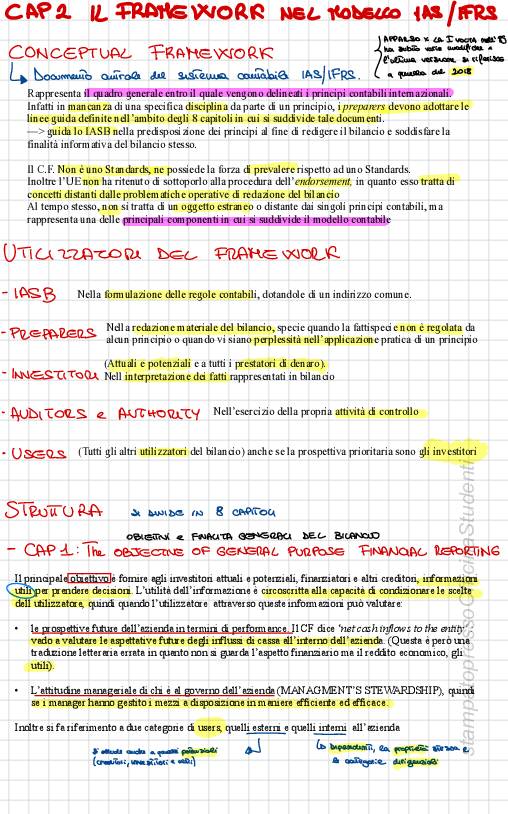 CAP 2 IL FRAMEWORK NEL MODELLO IAS/IFRS
CONCEPTUAL FRAMEWORK
APPARSO x LA I VOLTA nell'89
ha subito varie modifiche e
l'ultima versione si riferisce
a quella del 2018
Documento cardine del sistema contabile IAS/IFRS.
Rappresenta il quadro generale entro il quale vengono delineati i principi contabili internazionali.
Infatti in mancanza di una specifica disciplina da parte di un principio, i preparers devono adottare le
linee guida definite nell'ambito degli 8 capitoli in cui si suddivide tale documenti.
—> guida lo IASB nella predisposizione dei principi al fine di redigere il bilancio e soddisfare la
finalità informativa del bilancio stesso.
Il C.F. Non è uno Standards, ne possiede la forza di prevalere rispetto ad uno Standards.
Inoltre l'UE non ha ritenuto di sottoporlo alla procedura dell'endorsement, in quanto esso tratta di
concetti distanti dalle problematiche operative di redazione del bilancio
Al tempo stesso, non si tratta di un oggetto estraneo o distante dai singoli principi contabili, ma
rappresenta una delle principali componenti in cui si suddivide il modello contabile
UTILIZZATORI DEL FRAMEWORK
- IASB Nella formulazione delle regole contabili, dotandole di un indirizzo comune.
- PREPARERS Nella redazione materiale del bilancio, specie quando la fattispecie non è regolata da
alcun principio o quando vi siano perplessità nell'applicazione pratica di un principio
(Attuali e potenziali e a tutti i prestatori di denaro).
- INVESTITORI Nell interpretazione dei fatti rappresentati in bilancio
- AUDITORS e AUTHORITY Nell'esercizio della propria attività di controllo
- USERS (Tutti gli altri utilizzatori del bilancio) anche se la prospettiva prioritaria sono gli investitori
STRUTTURA si divide in 8 capitoli
OBIETTIVI e FINALITÀ GENERALI DEL BILANCIO
- CAP 1: The OBJECTINE OF GENERAL PURPOSE FINANCIAL REPORTING
Il principale obiettivo è fornire agli investitori attuali e potenziali, finanziatori e altri creditori, informazioni
utili per prendere decisioni. L'utilità dell'informazione è circoscritta alla capacità di condizionare le scelte
dell'utilizzatore, quindi quando l'utilizzatore attraverso queste informazioni può valutare:
• le prospettive future dell'azienda in termini di performance. Il CF dice 'net cash inflows to the entity'
vado a valutare le aspettative future degli influssi di cassa all'interno dell'azienda. (Questa è però una
traduzione letteraria errata in quanto non si guarda l'aspetto finanziario ma il reddito economico, gli
utili).
• L'attitudine manageriale di chi è al governo dell'azienda (MANAGMENT'S STEWARDSHIP), quindi
se i manager hanno gestito i mezzi a disposizione in maniere efficiente ed efficace.
Inoltre si fa riferimento a due categorie di users, quelli esterni e quelli interni all'azienda
si estende anche a quelli potenziali
(creditori, investitori e altri)
Dipendenti, la proprietà stessa e
le categorie dirigenziali